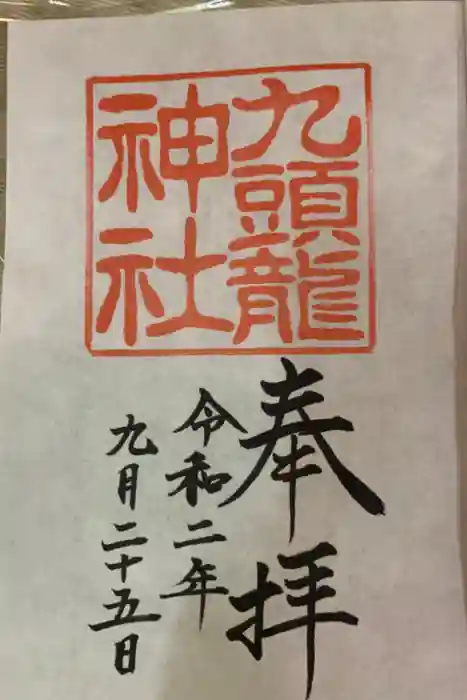 九頭龍
神社
奉拝
令和二年
九月二十五日